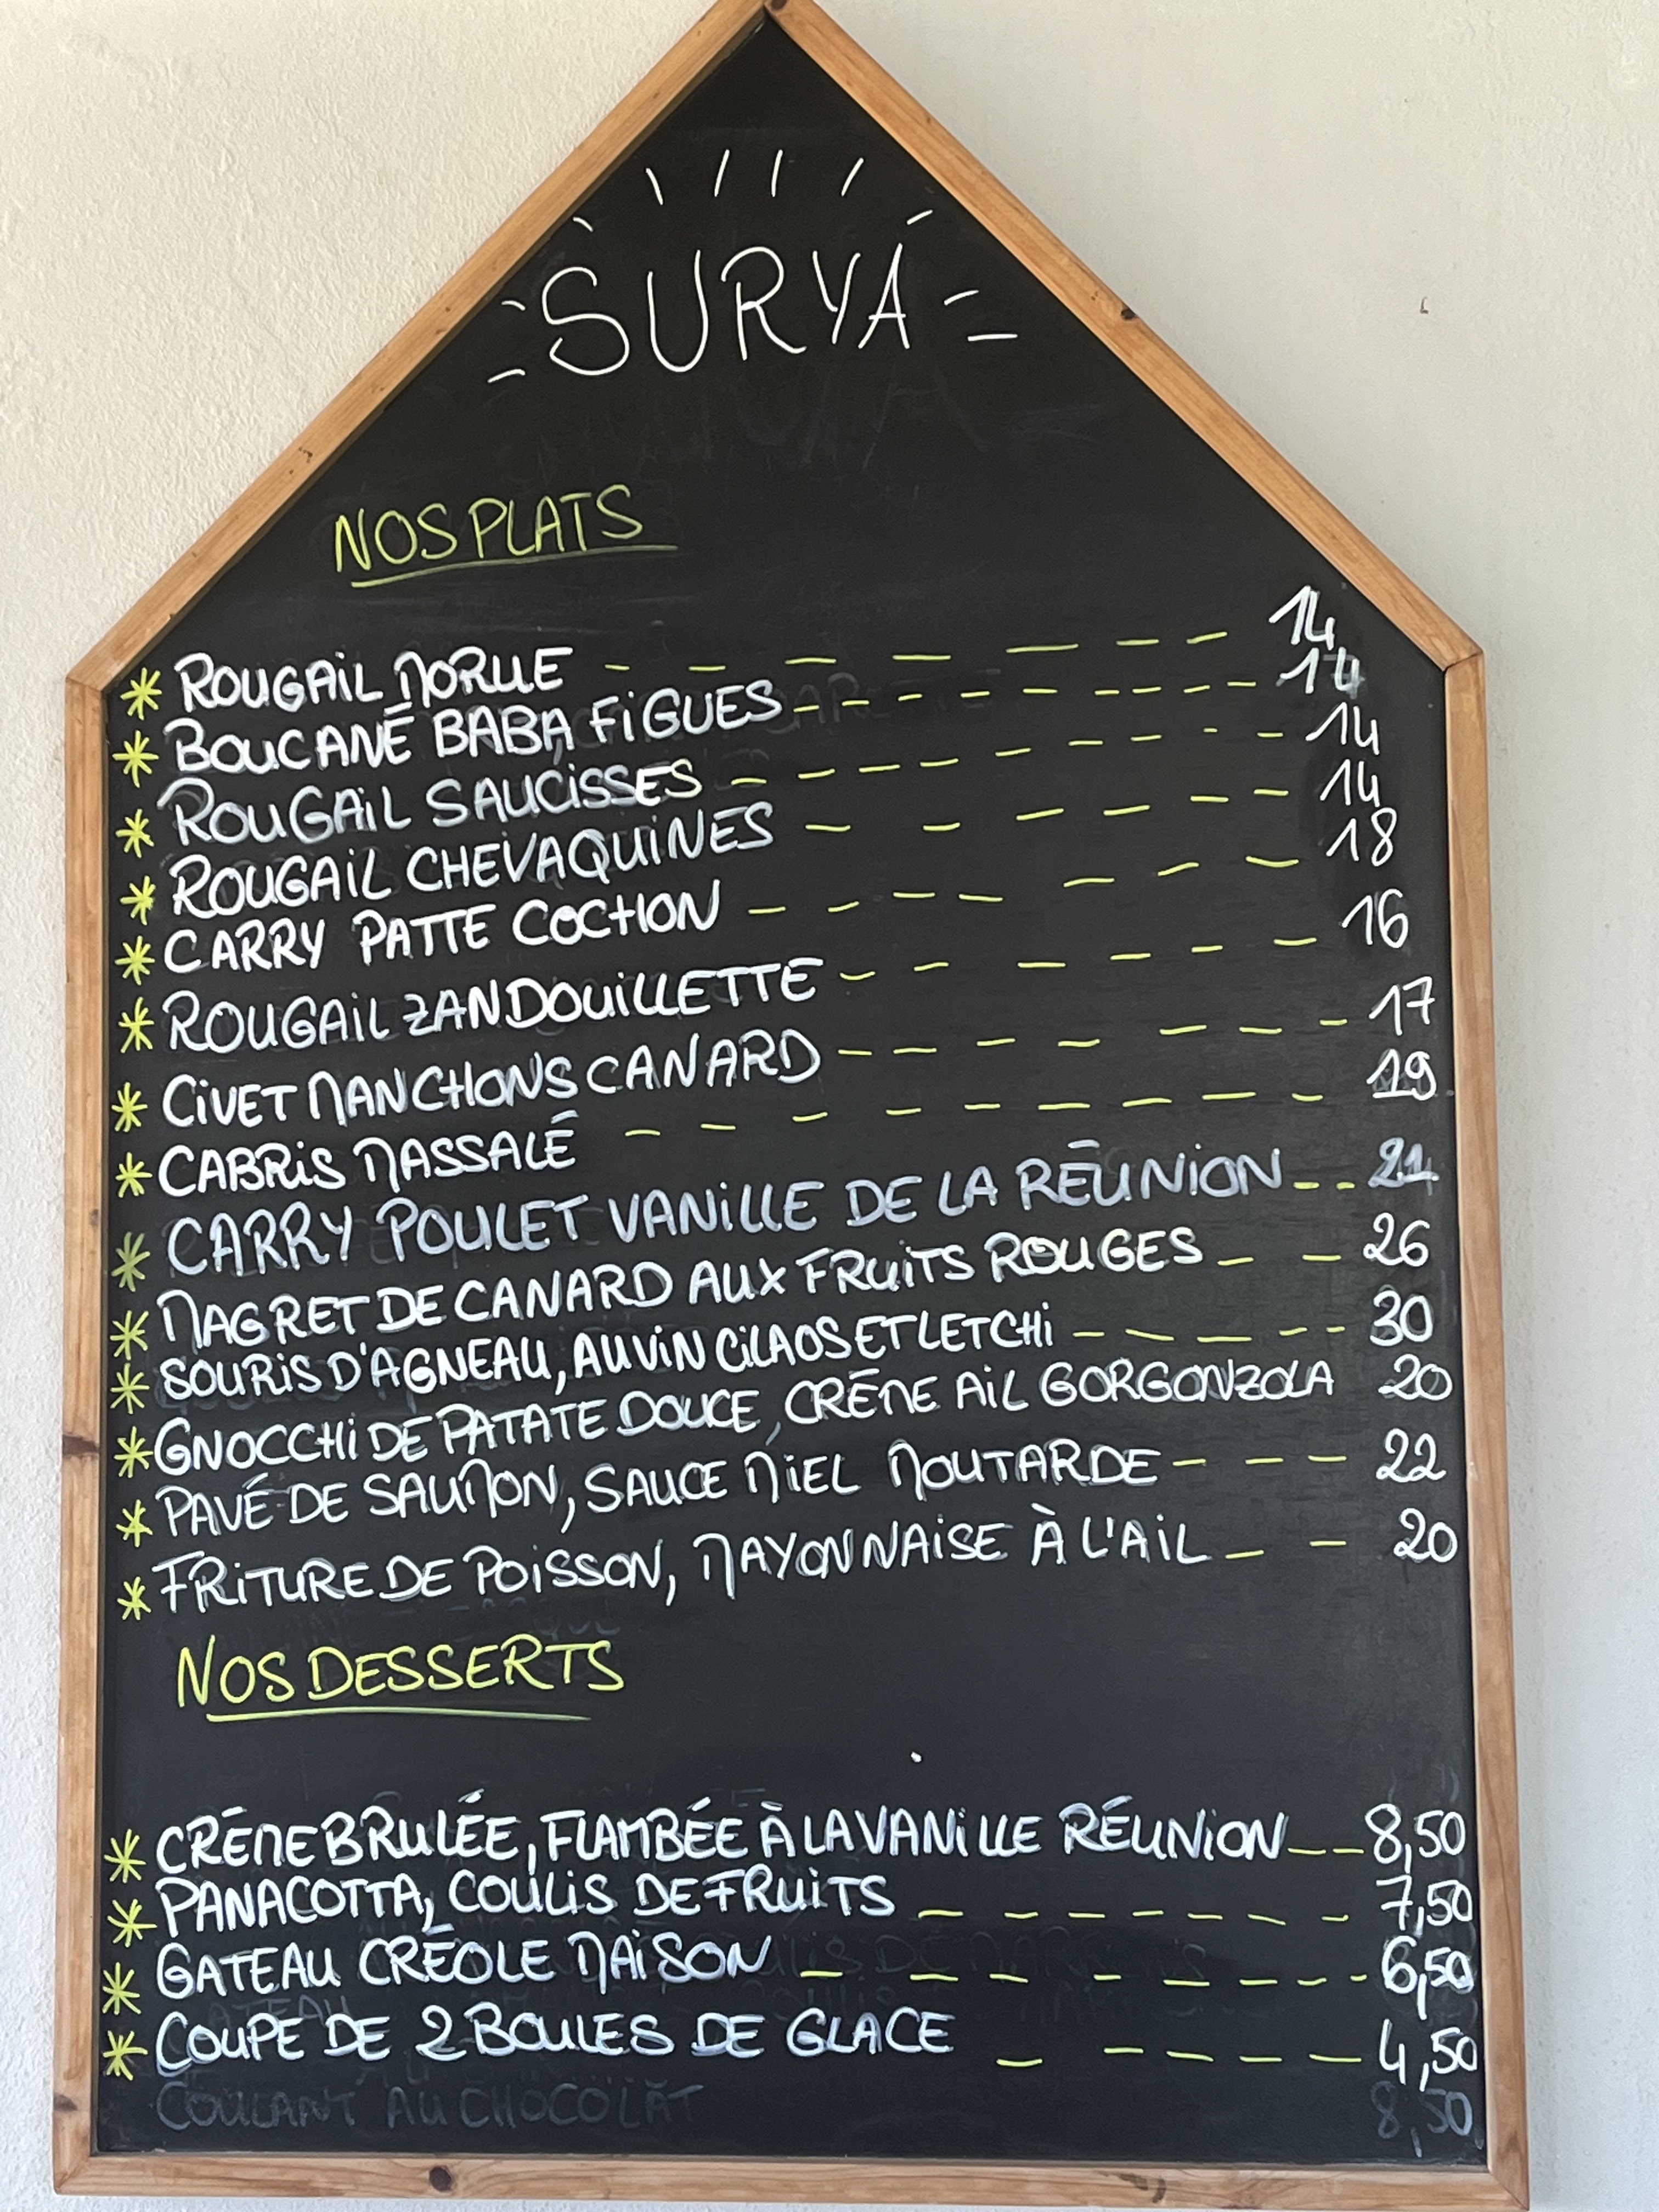 SURYA
NOS PLATS
* ROUGAIL MORUE - - - - - - - 14
* BOUCANÉ BABA FIGUES - - - - - - - - - 14
* ROUGAIL SAUCISSES - - - - - - - - - 14
* ROUGAIL CHEVAQUINES - - - - - - 14
* CARRY PATTE COCHON - - - - - - - 18
* ROUGAIL ZANDOUILLETTE - - - - - - 16
* CIVET MANCHONS CANARD - - - - - - - 17
* CABRIS MASSALÉ - - - - - - - - - 19
* CARRY POULET VANILLE DE LA RÉUNION - - 21
* MAGRET DE CANARD AUX FRUITS ROUGES - - 26
* SOURIS D'AGNEAU, AU VIN CILAOS ET LETCHI - - - - - - 30
* GNOCCHI DE PATATE DOUCE, CRÉME AIL GORGONZOLA 20
* PAVÉ DE SAUMON, SAUCE MIEL MOUTARDE - - - 22
* FRITURE DE POISSON, MAYONNAISE À L'AIL - - 20
NOS DESSERTS
* CRÉME BRULÉE, FLAMBÉE À LA VANILLE RÉUNION - - 8,50
* PANACOTTA, COULIS DE FRUITS - - - - - - - 7,50
* GATEAU CRÉOLE MAISON - - - - - - - 6,50
* COUPE DE 2 BOULES DE GLACE - - - - - 4,50
COULANT AU CHOCOLAT 8,50